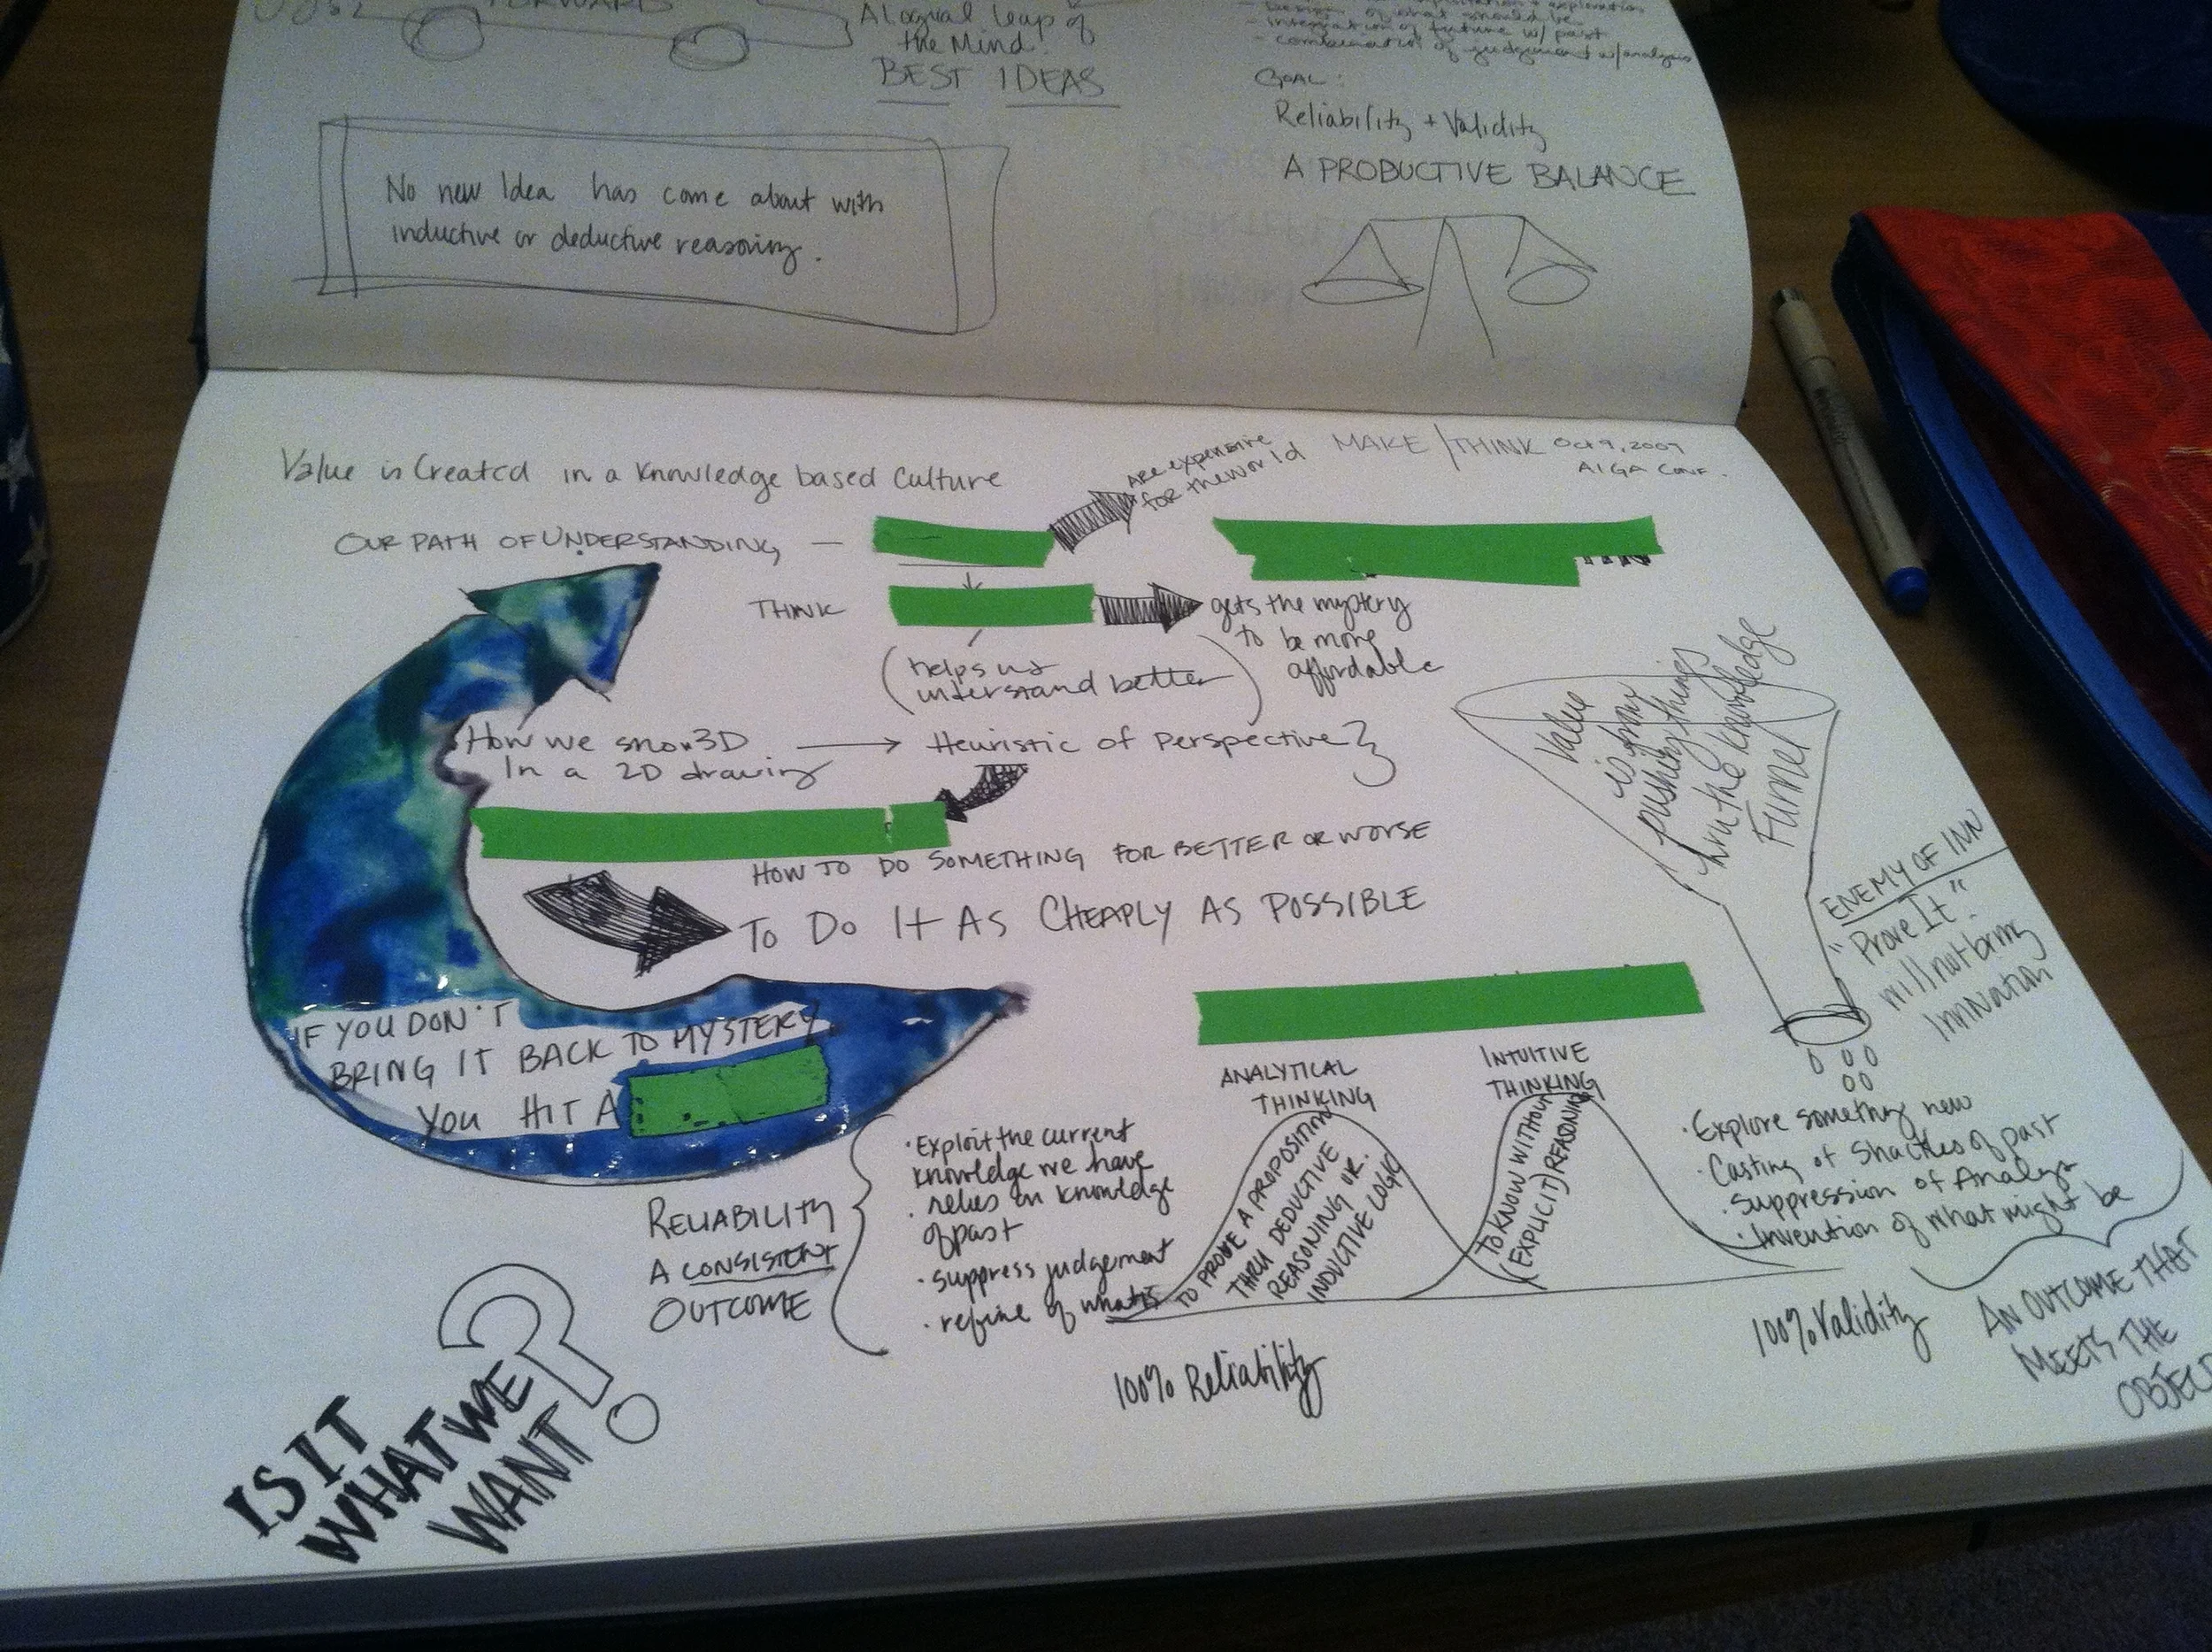 FORWARD
A logical leap of
the Mind!
BEST IDEAS
- Design of what should be
- integration of future w/ past
- combination of judgement w/analysis
GOAL:
Reliability + Validity
A PRODUCTIVE BALANCE
No new Idea has come about with
inductive or deductive reasoning.
Value is Created in a Knowledge based Culture
MAKE/THINK Oct 9, 2009
AIGA CONF.
OUR PATH OF UNDERSTANDING —
ARE expensive
for the world
THINK
gets the mystery
to be more
affordable
(helps us
understand better)
How we show 3D
In a 2D drawing
Heuristic of Perspective
HOW TO DO SOMETHING FOR BETTER OR WORSE
TO DO IT AS CHEAPLY AS POSSIBLE
IF YOU DON'T
BRING IT BACK TO MYSTERY,
YOU HIT A
Value
is from
pushing things
thru the knowledge
Funnel
ENEMY OF INN
"Prove It"
will not bring
InnNation
RELIABILITY
A CONSISTENT
OUTCOME
• Exploit the current
knowledge we have
• relies on knowledge
of past
• suppress judgement
• refine of what is
ANALYTICAL
THINKING
TO PROVE A PROPOSITION
THRU DEDUCTIVE
REASONING OR
INDUCTIVE LOGIC
INTUITIVE
THINKING
TO KNOW WITHOUT
(EXPLICIT) REASONING
• Explore something new
• Casting of Shackles of past
• suppression of Analysis
• Invention of what might be
100% Reliability
100% Validity
AN OUTCOME THAT
MEETS THE
OBJECT
IS IT
WHAT WE
WANT?